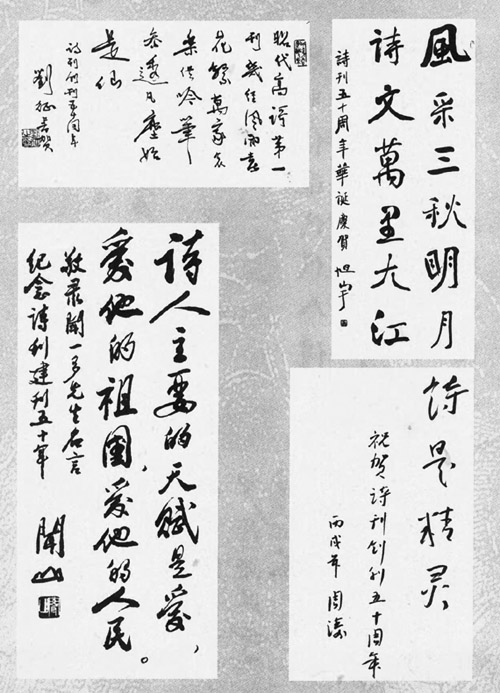 昭代高謌第一
刊幾经風雨喜
花繁萬家哀
樂供吟筆
参透凡塵始
是仙
诗刊创刊五十周年
劉征志贺
風采三秋明月
詩文萬里大江
詩刊五十周年華誕慶賀 旭宇
詩人主要的天赋是爱，
爱他的祖國，爱他的人民。
敬录聞一多先生名言
纪念诗刊建刊五十年
聞山
诗是精灵
祝贺诗刊创刊五十周年
丙戌年 周涛